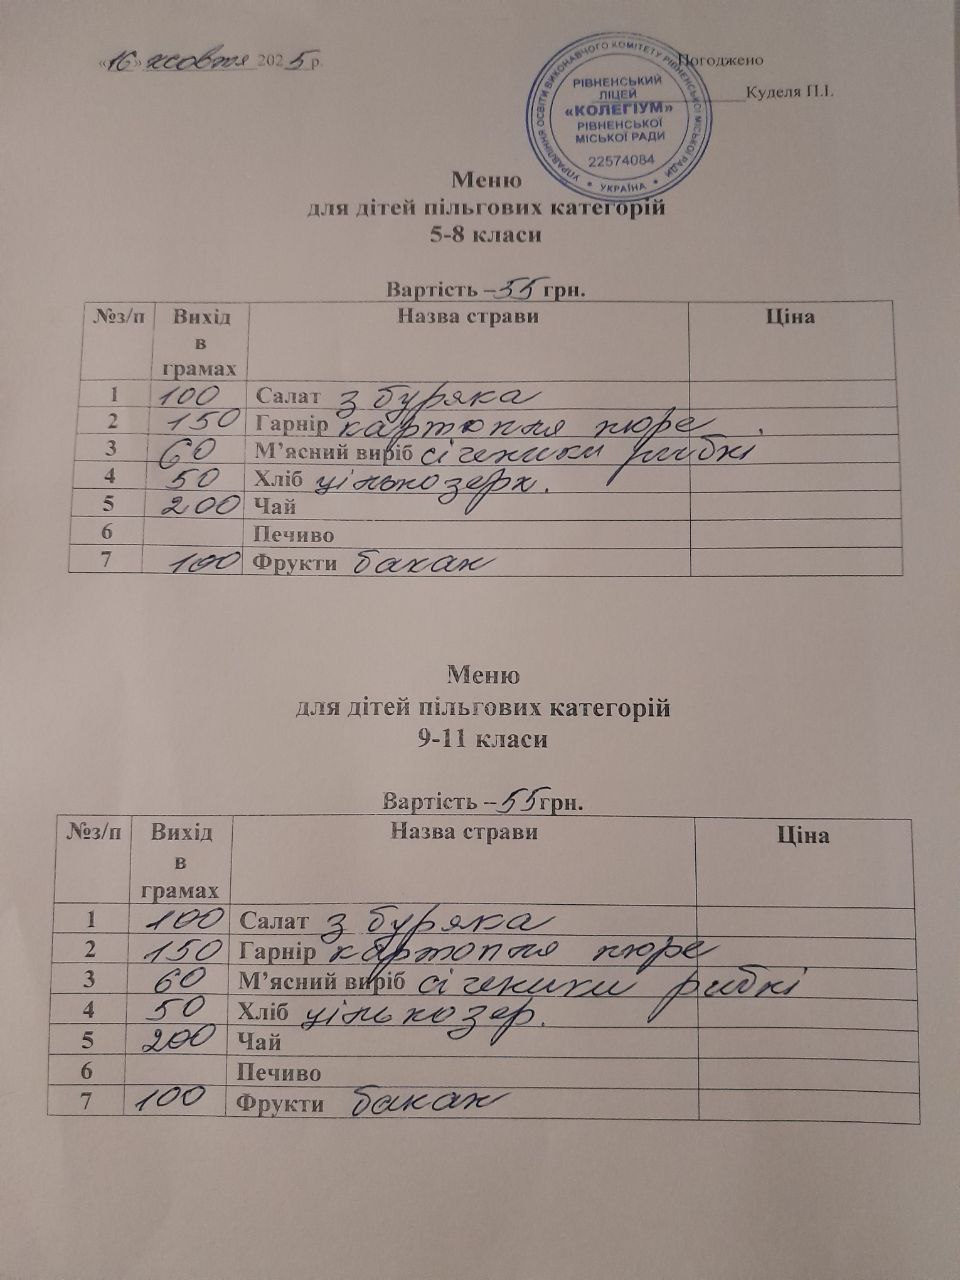 «16» жовтня 2025 р.
Погоджено
Куделя П.І.
УПРАВЛІННЯ ОСВІТИ ВИКОНАВЧОГО КОМІТЕТУ РІВНЕНСЬКОЇ МІСЬКОЇ РАДИ
* УКРАЇНА *
РІВНЕНСЬКИЙ
ЛІЦЕЙ
«КОЛЕГІУМ»
РІВНЕНСЬКОЇ
МІСЬКОЇ РАДИ
22574084
Меню
для дітей пільгових категорій
5-8 класи
Вартість – 55 грн.
№з/п Вихід в грамах Назва страви Ціна
1 100 Салат з буряка
2 150 Гарнір картопля пюре
3 60 М’ясний виріб січеники рибні
4 50 Хліб цільнозерн.
5 200 Чай
6 Печиво
7 100 Фрукти банан
Меню
для дітей пільгових категорій
9-11 класи
Вартість – 55 грн.
№з/п Вихід в грамах Назва страви Ціна
1 100 Салат з буряка
2 150 Гарнір картопля пюре
3 60 М’ясний виріб січеники рибні
4 50 Хліб цільнозер.
5 200 Чай
6 Печиво
7 100 Фрукти банан